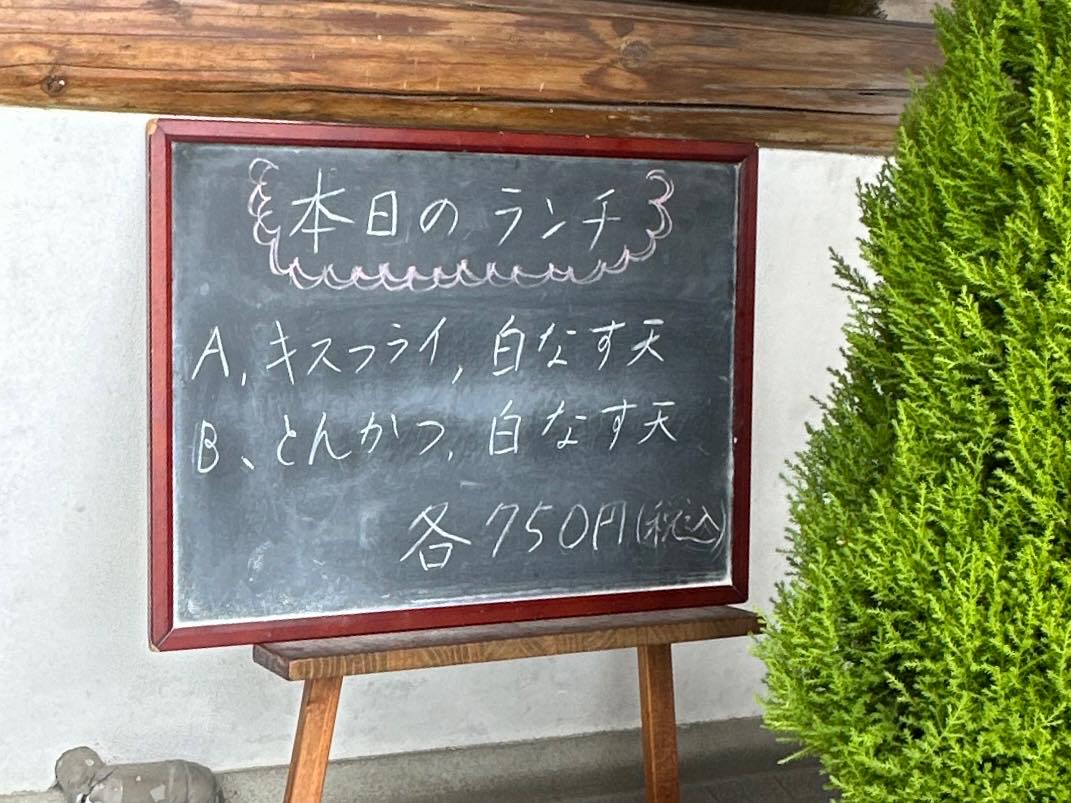 本日のランチ
A, キスフライ, 白なす天
B、とんかつ, 白なす天
各750円(税込)